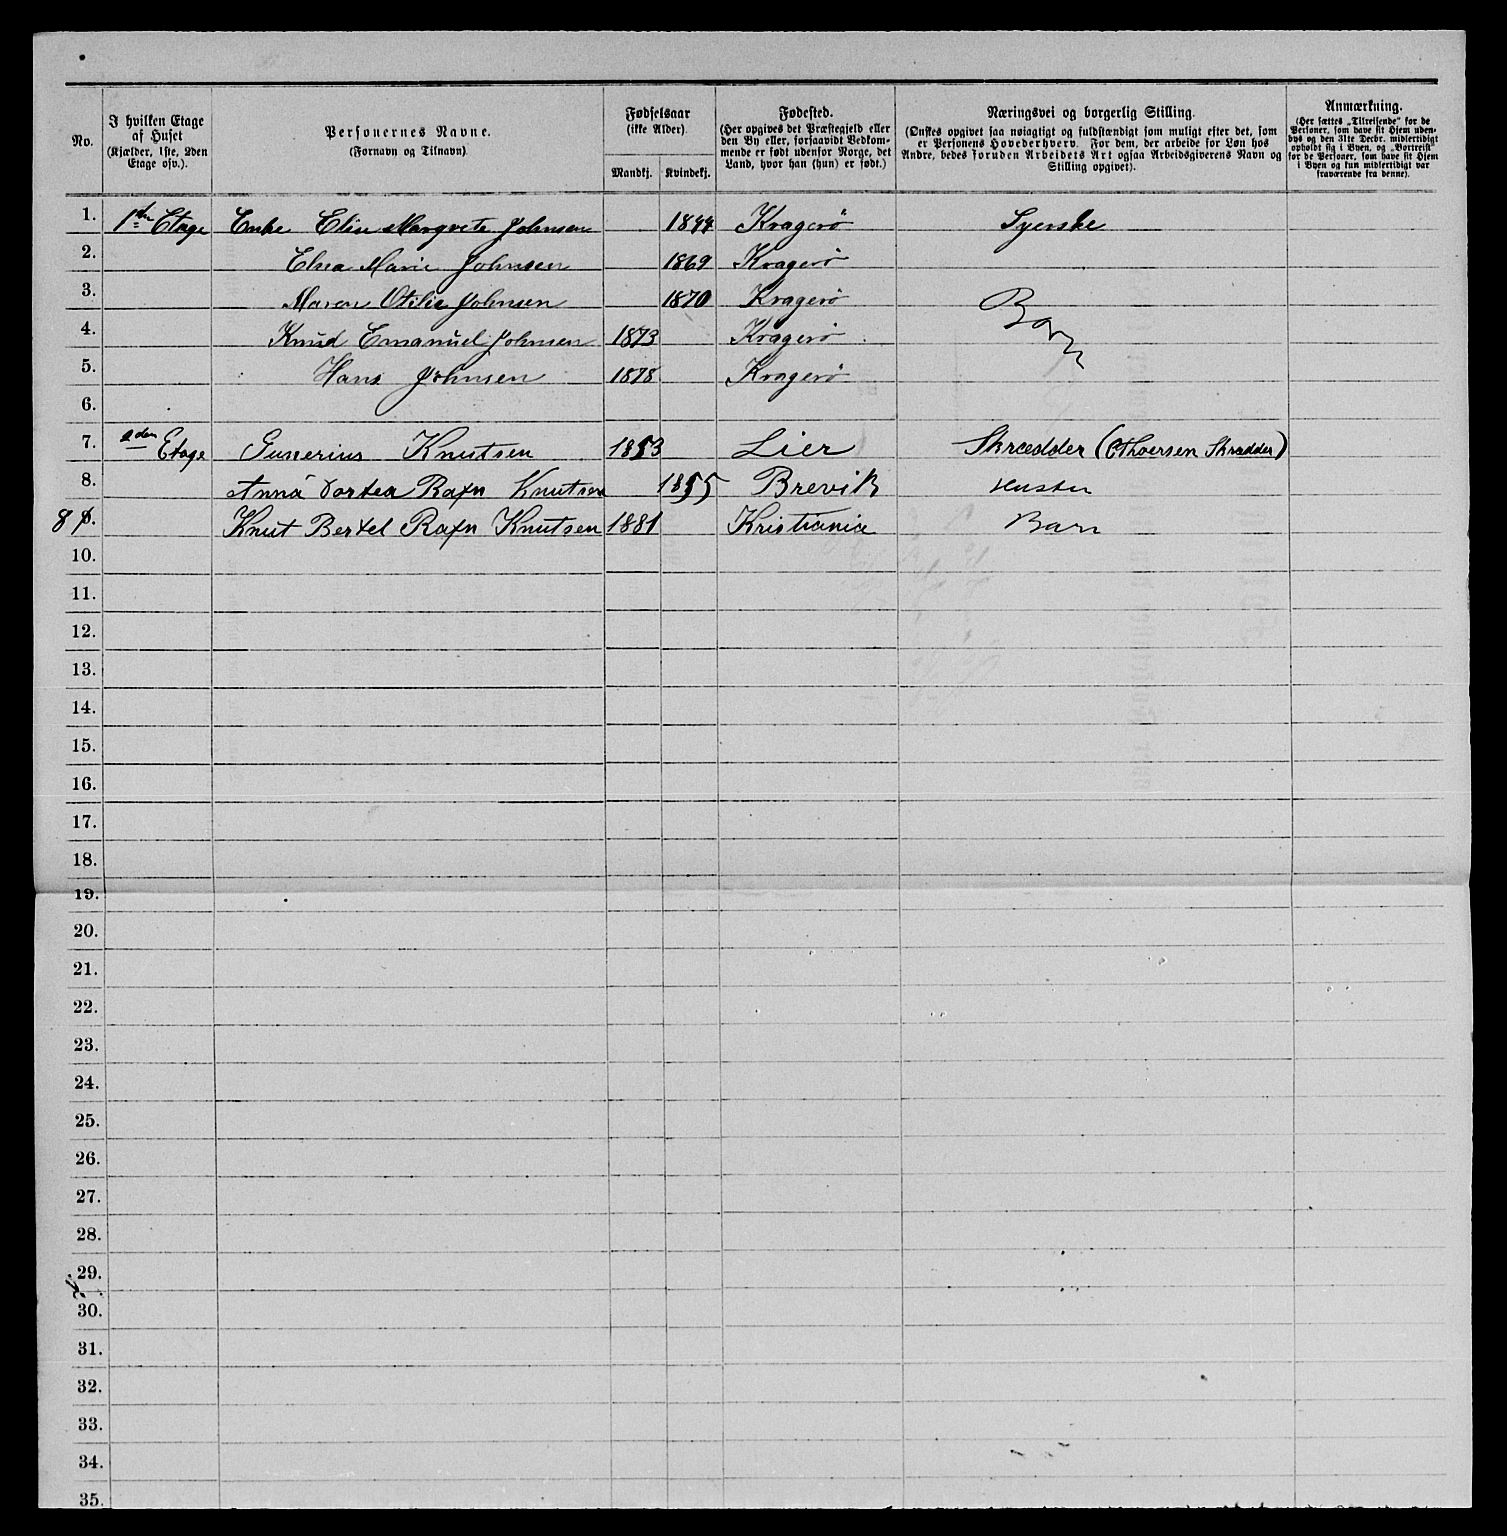 No.
I hvilken Etage
af Huset
(Kjælder, 1ste, 2den
Etage osv.).
Personernes Navne.
(Fornavn og Tilnavn)
Fødselsaar
(ikke Alder).
Mandkj. Kvindekj.
Fødested.
(Her opgives det Præstegjeld eller
den By eller, forsaavidt Vedkom-
mende er født udenfor Norge, det
Land, hvor han (hun) er født.)
Næringsvei og borgerlig Stilling.
(Ønskes opgivet saa nøiagtigt og fuldstændigt som muligt efter det, som
er Personens Hovederhverv. For dem, der arbeide for Løn hos
Andre, bedes foruden Arbeidets Art ogsaa Arbeidsgiverens Navn og
Stilling opgivet).
Anmærkning.
(Her sættes „Tilreisende“ for de
Personer, som have sit Hjem uden-
bys og den 31te Decbr. midlertidigt
opholdt sig i Byen, og „Bortreist“
for de Personer, som have sit Hjem
i Byen og kun midlertidigt var
fraværende fra denne).
1. 1ste Etage Enke Elin Margrete Johnsen 1844 Kragerö Syerske
2. Elna Marie Johnsen 1869 Kragerö
3. Maren Otilie Johnsen 1870 Kragerö
4. Knud Emanuel Johnsen 1873 Kragerö Barn
5. Hans Johnsen 1878 Kragerö
6.
7. 2den Etage Gunerius Knutsen 1853 Lier Skrædder (Thoersen Skrædder)
8. Anna Dortea Rafn Knutsen 1855 Brevik Hustru
8 9. Knut Bertel Rafn Knutsen 1881 Kristiania Barn
10.
11.
12.
13.
14.
15.
16.
17.
18.
19.
20.
21.
22.
23.
24.
25.
26.
27.
28.
29.
30.
31.
32.
33.
34.
35.